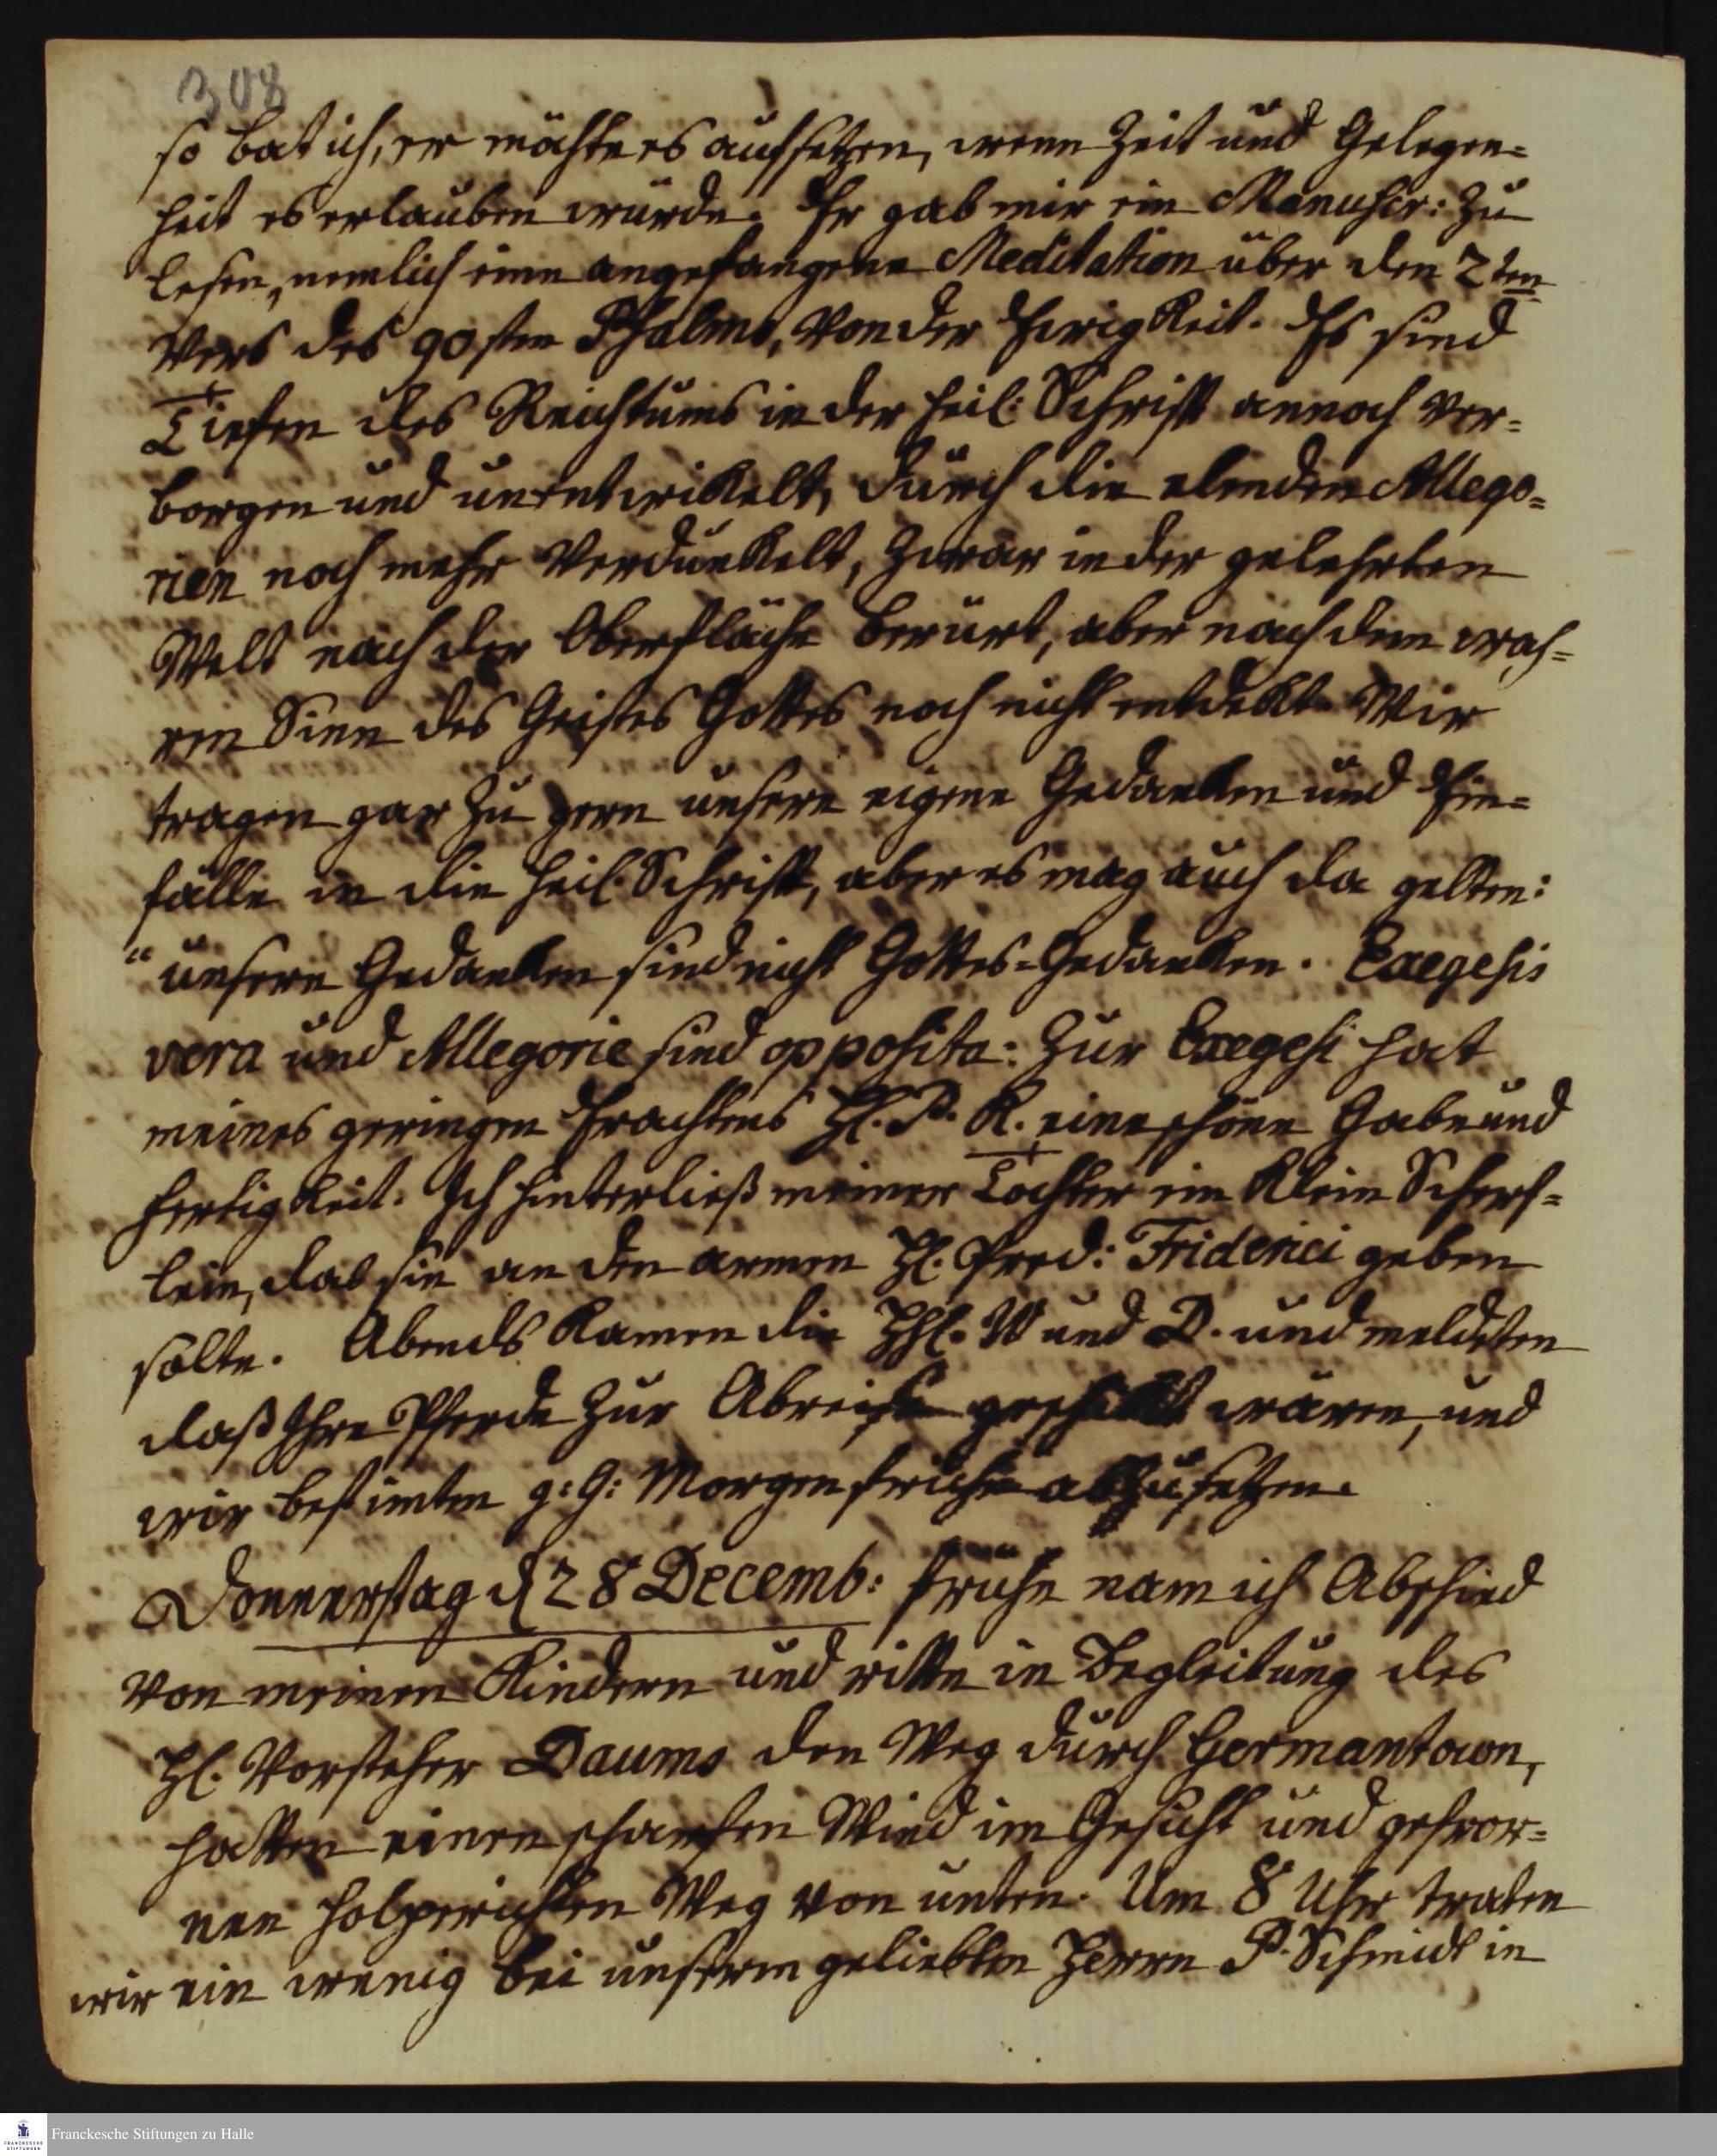 308
so bat ich, er möchte es aufsetzen, wenn Zeit und Gelegen=
heit es erlauben würde. Er gab mir ein Manuscr: zu
lesen, nemlich eine angefangene Meditation über den 2ten
Vers des 90sten Psalms, von der Ewigkeit. Es sind
Tiefen des Reichtums in der heil: Schrift annoch ver=
borgen und unentwikelt, durch die elenden Allego=
rien noch mehr verdunkelt, zwar in der gelehrten
Welt nach der Oberfläche berürt, aber nach dem wah=
ren Sinn des Geistes Gottes noch nicht entdekt. Wir
tragen gar zu gern unsere eigene Gedanken und Ein=
fälle in die heil. Schrift, aber es mag auch da gelten:
“unsere Gedanken sind nicht Gottes=Gedanken. Exegesis
vera und Allegorie sind opposita: Zur Exegesi hat
meines geringen Erachtens H. P. K. eine schöne Gabe und
Fertigkeit. Ich hinterließ meiner Tochter ein klein Scherf=
lein, das sie an den armen H. Pred: Friderici geben
solte. Abends kamen die HH. W und D. und meldeten
daß Ihre Pferde zur Abreise geschikt wären, und
wir bestimten g: G: Morgen frühe abzusetzen.
Donnerstag d 28 Decemb: frühe nam ich Abschied
von meinen Kindern und ritte in Begleitung des
H. Vorsteher Daums den Weg durch Germantown,
hatten einen scharfen Wind im Gesicht und gefror=
nen holperichten Weg von unten. Um 8 Uhr traten
wir ein wenig bei unserm geliebten Herrn P. Schmidt in
Franckesche Stiftungen zu Halle